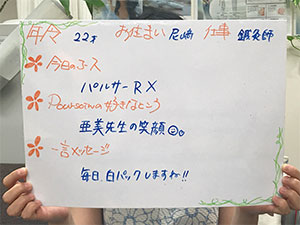 年令 22才 お住まい 尼崎 仕事 鍼灸師
今日のコース
パルサーRX
Poursoinの好きなところ
亜美先生の笑顔☺。
一言メッセージ
毎日、白パックしますね!!